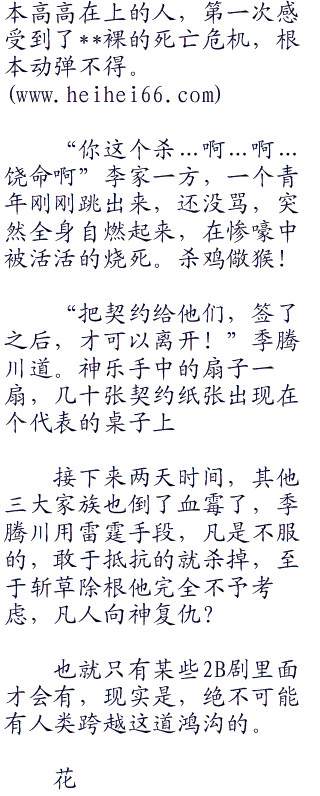 本高高在上的人，第一次感
受到了**裸的死亡危机，根
本动弹不得。
(www.heihei66.com)
“你这个杀…啊…啊…
饶命啊”李家一方，一个青
年刚刚跳出来，还没骂，突
然全身自燃起来，在惨嚎中
被活活的烧死。杀鸡儆猴！
“把契约给他们，签了
之后，才可以离开！”季腾
川道。神乐手中的扇子一
扇，几十张契约纸张出现在
个代表的桌子上
接下来两天时间，其他
三大家族也倒了血霉了，季
腾川用雷霆手段，凡是不服
的，敢于抵抗的就杀掉，至
于斩草除根他完全不予考
虑，凡人向神复仇？
也就只有某些2B剧里面
才会有，现实是，绝不可能
有人类跨越这道鸿沟的。
花